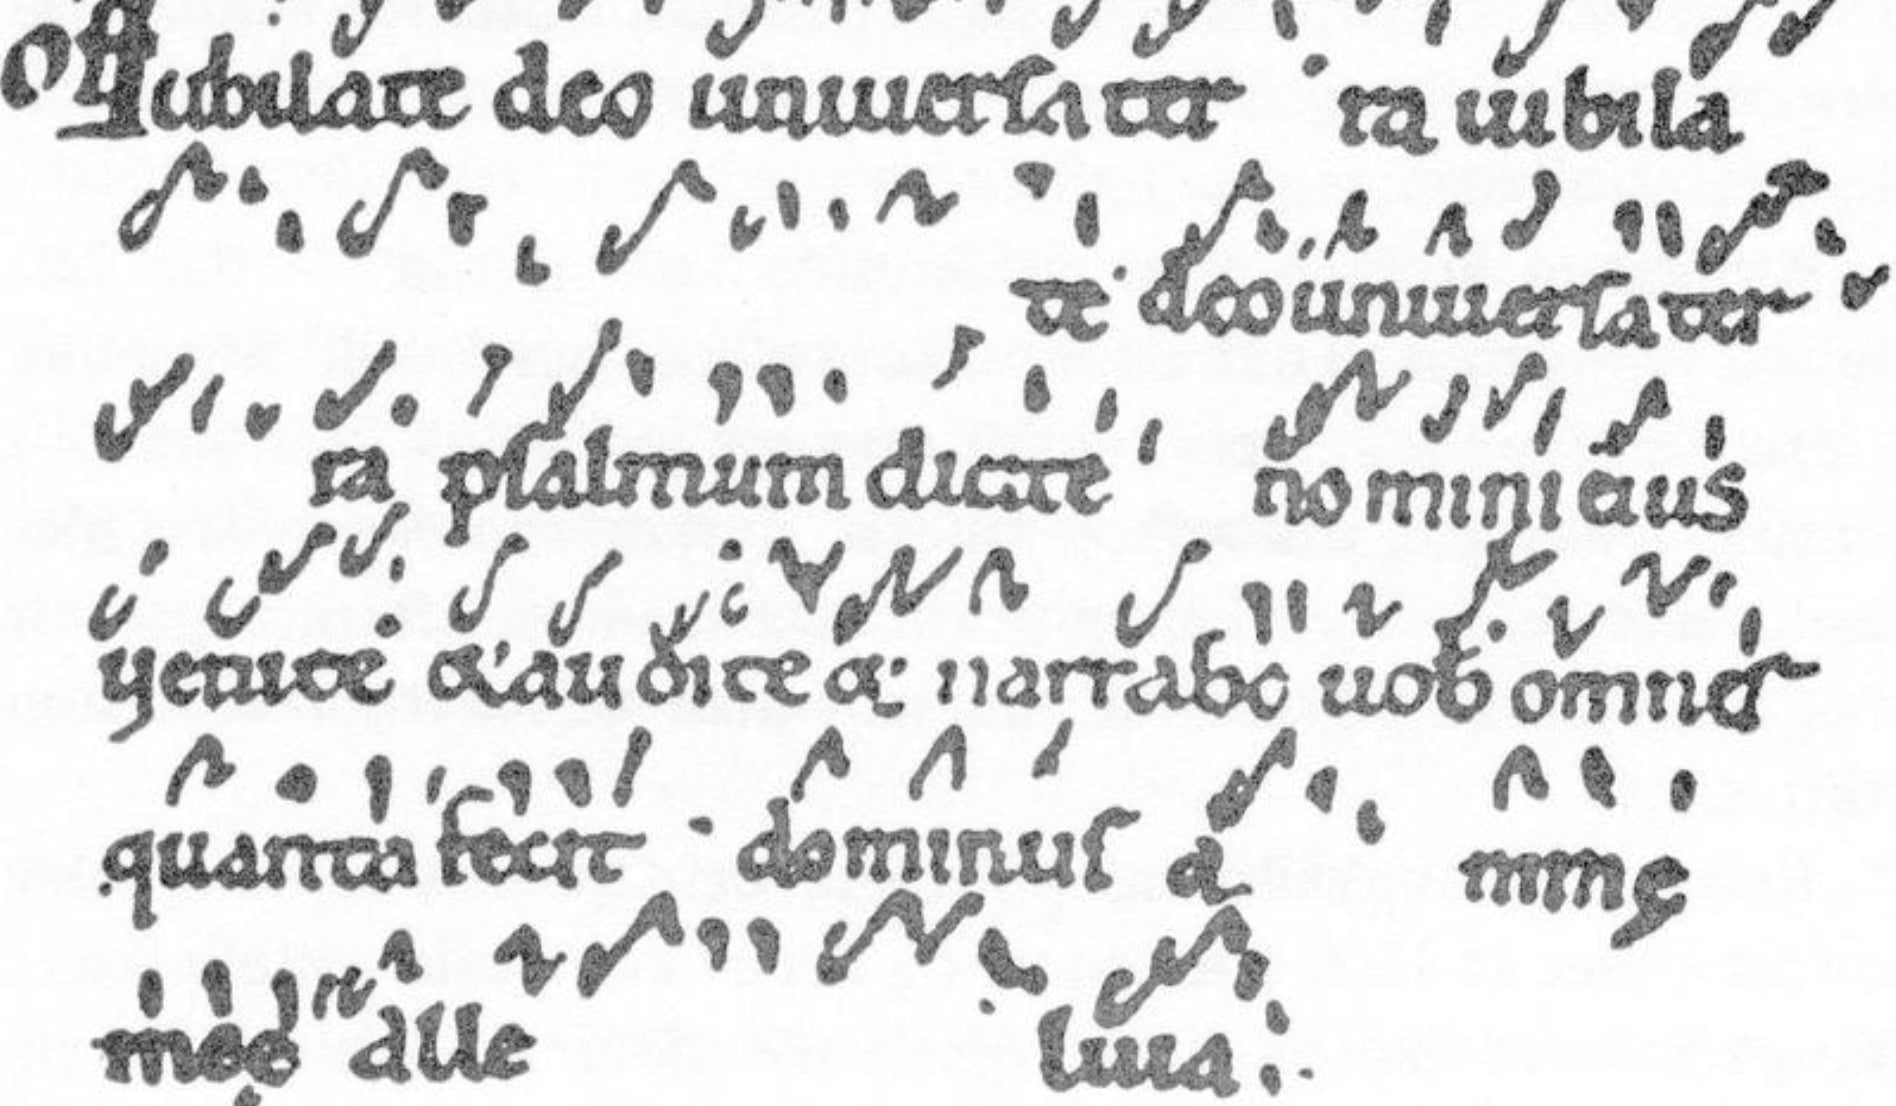 Off Iubilate deo uniuersa ter ra iubila
te deo uniuersa ter
ra psalmum dicite nomini eius
uenite & audite & narrabo uob omnia
quanta fecit dominus a nime
meę alle luia